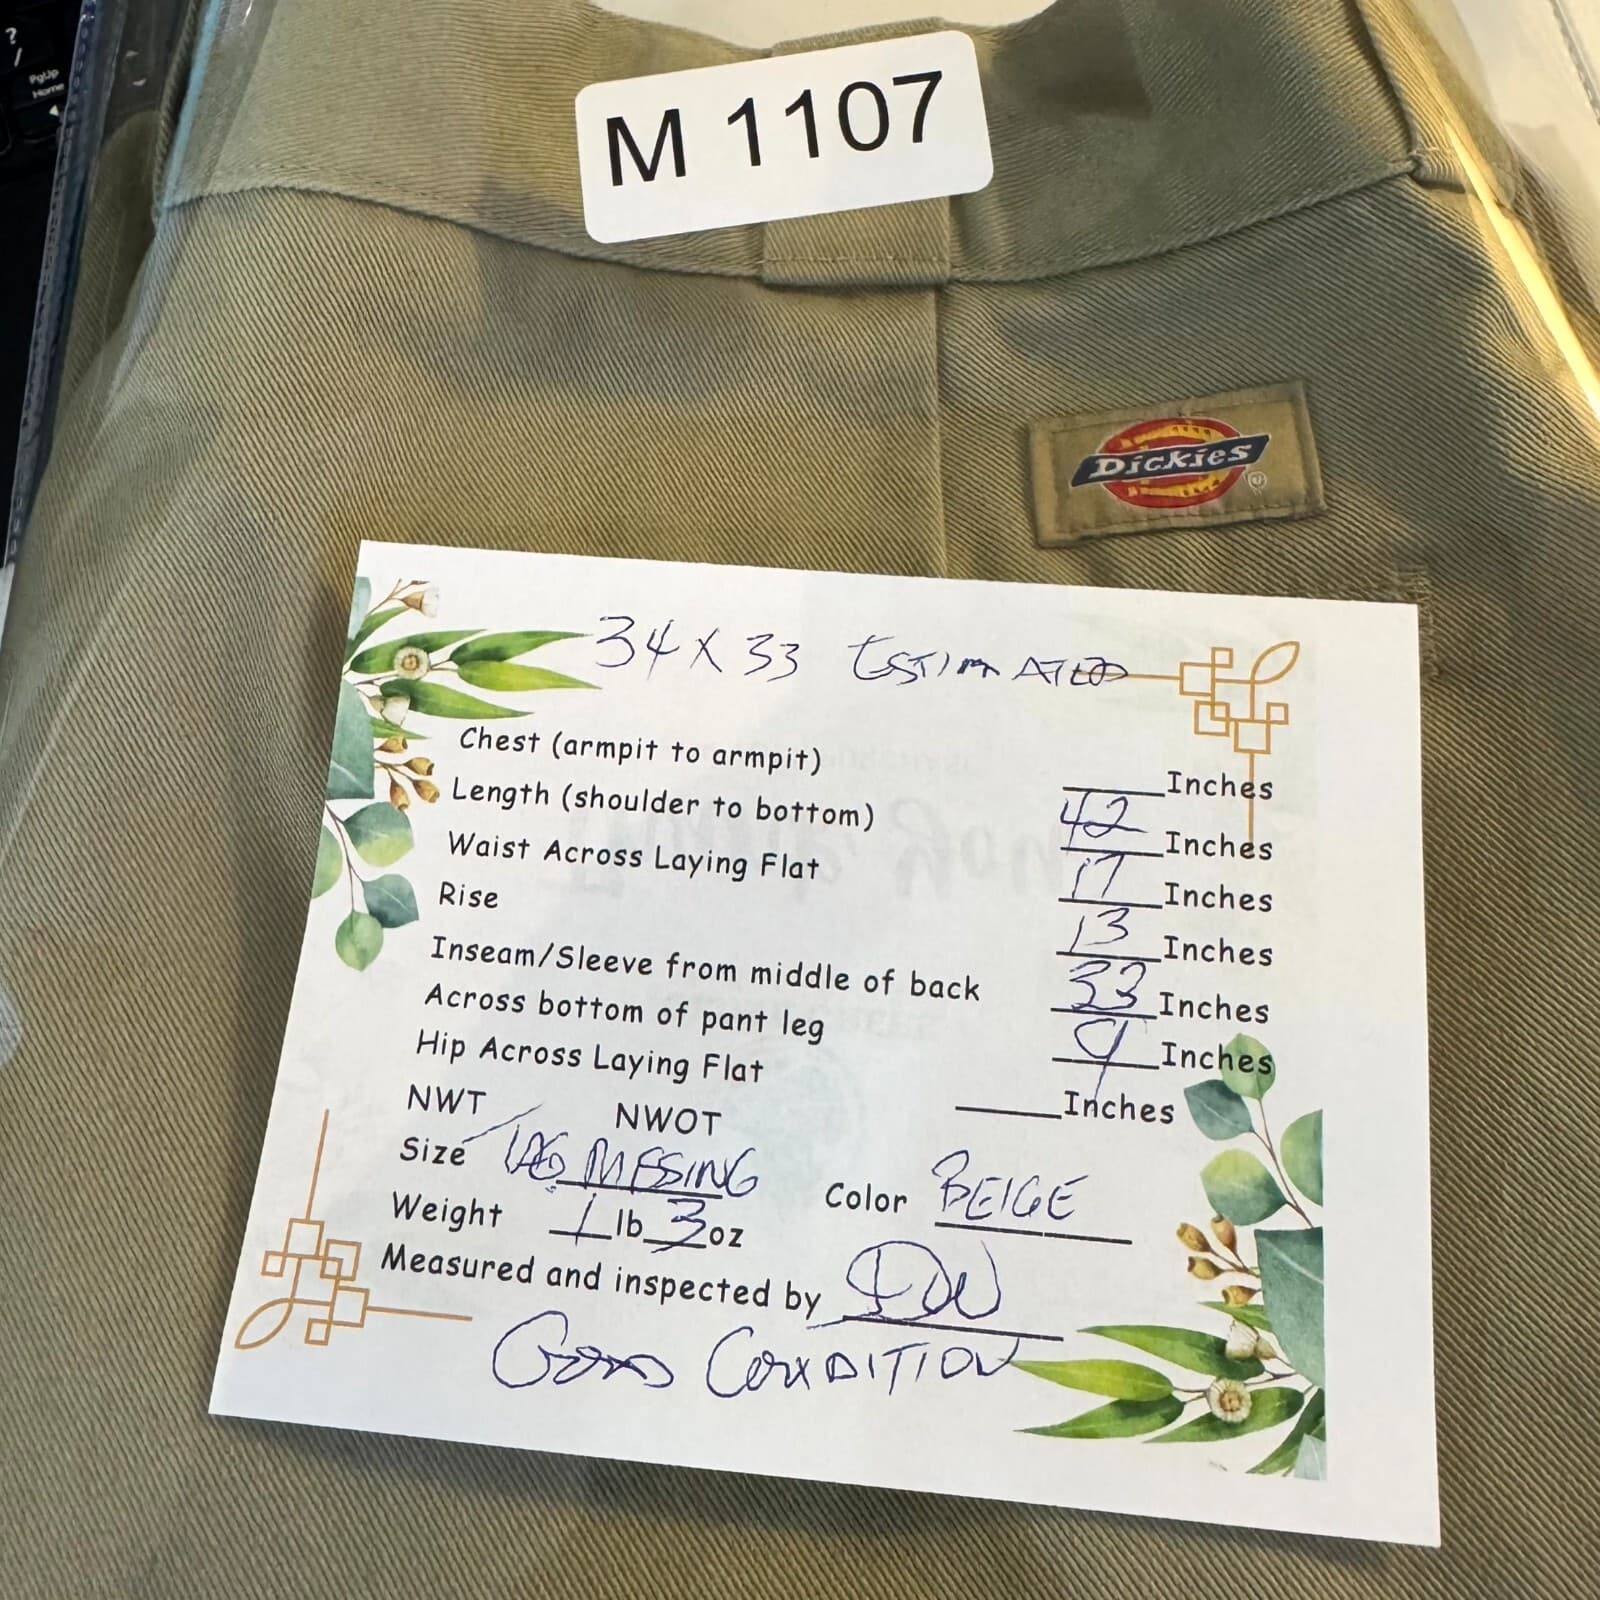 ?
/
PgUp
Home
M 1107
Dickies
®
34 X 33 ESTIMATED
Chest (armpit to armpit) ____Inches
Length (shoulder to bottom) 42 Inches
Waist Across Laying Flat 17 Inches
Rise 13 Inches
Inseam/Sleeve from middle of back 33 Inches
Across bottom of pant leg 9 Inches
Hip Across Laying Flat ____Inches
NWT NWOT
Size TAG MISSING Color BEIGE
Weight 1 lb 3 oz
Measured and inspected by DW
GOOD CONDITION